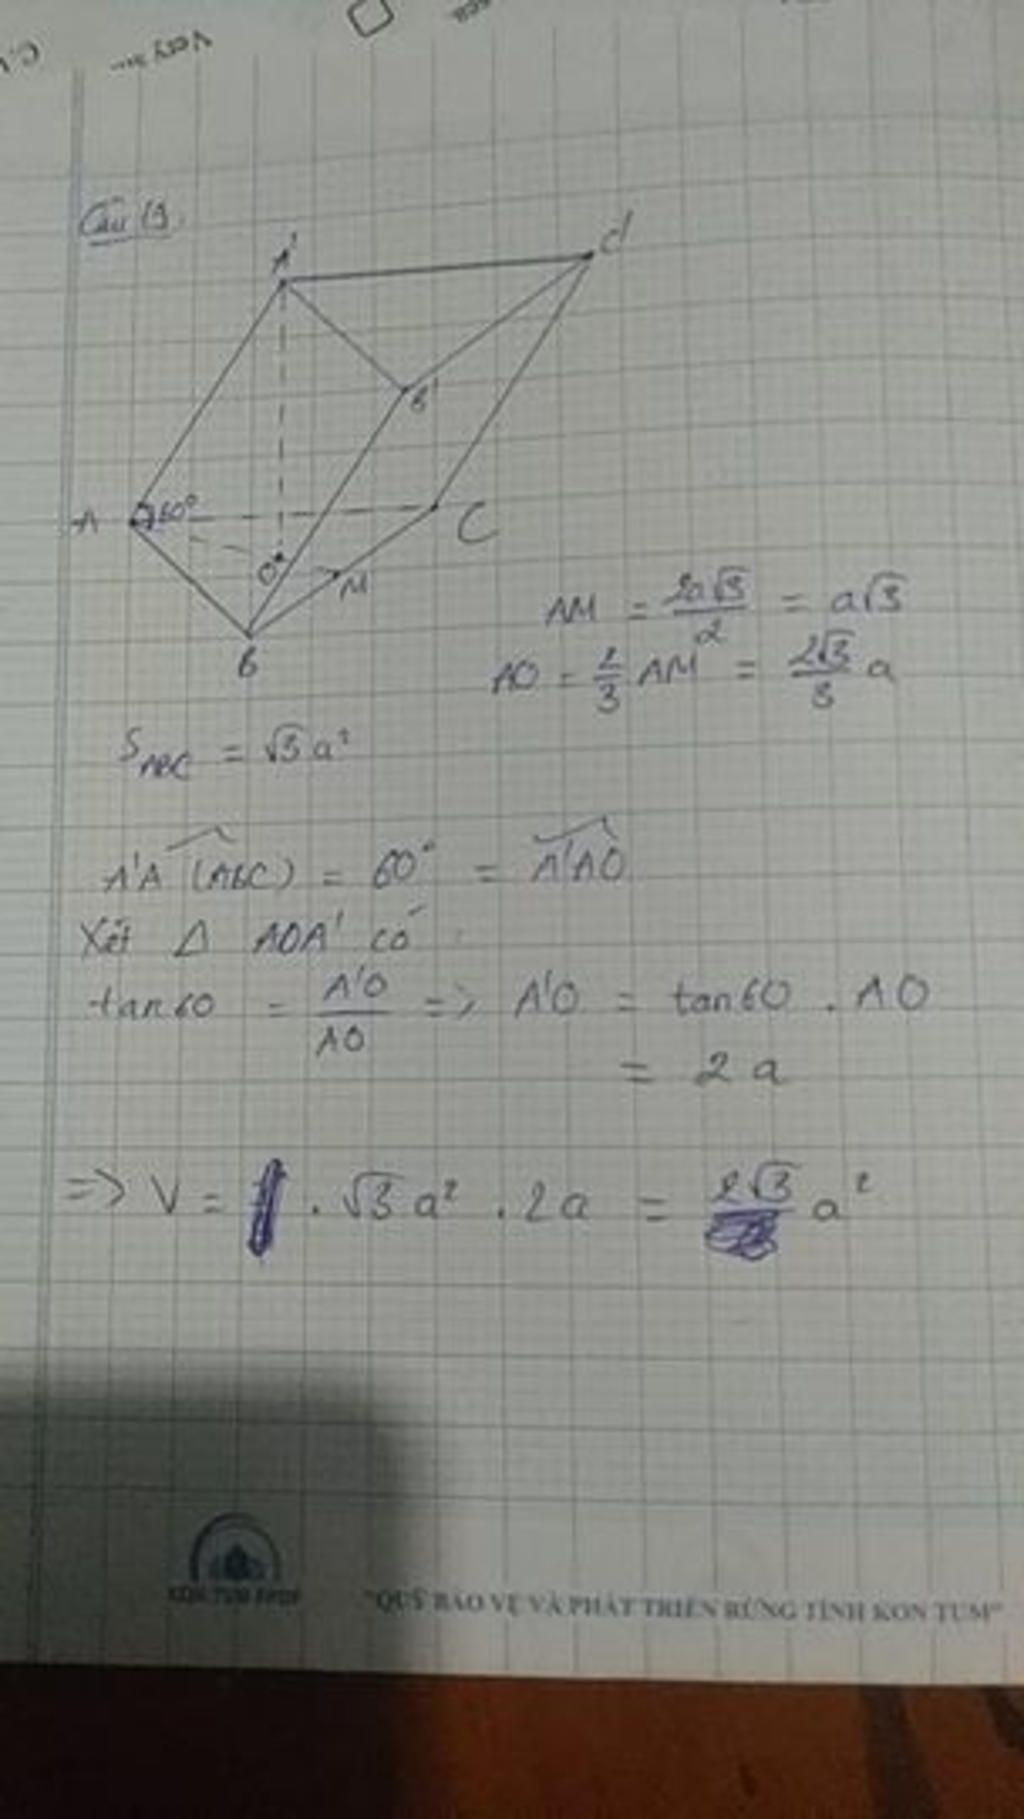 Very
Câu 19.
A'
C'
B'
A
60°
C
O
M
B
AM = 2a√3/2 = a√3
AO = 2/3 AM = 2√3/3 a
S_ABC = √3 a²
A'A (ABC) = 60° = A'AO
Xét Δ AOA' có
tan60 = A'O/AO => A'O = tan60 . AO
= 2a
=> V = . √3 a² . 2a = 2√3 a²
"QUỸ BẢO VỆ VÀ PHÁT TRIỂN RỪNG TỈNH KON TUM"